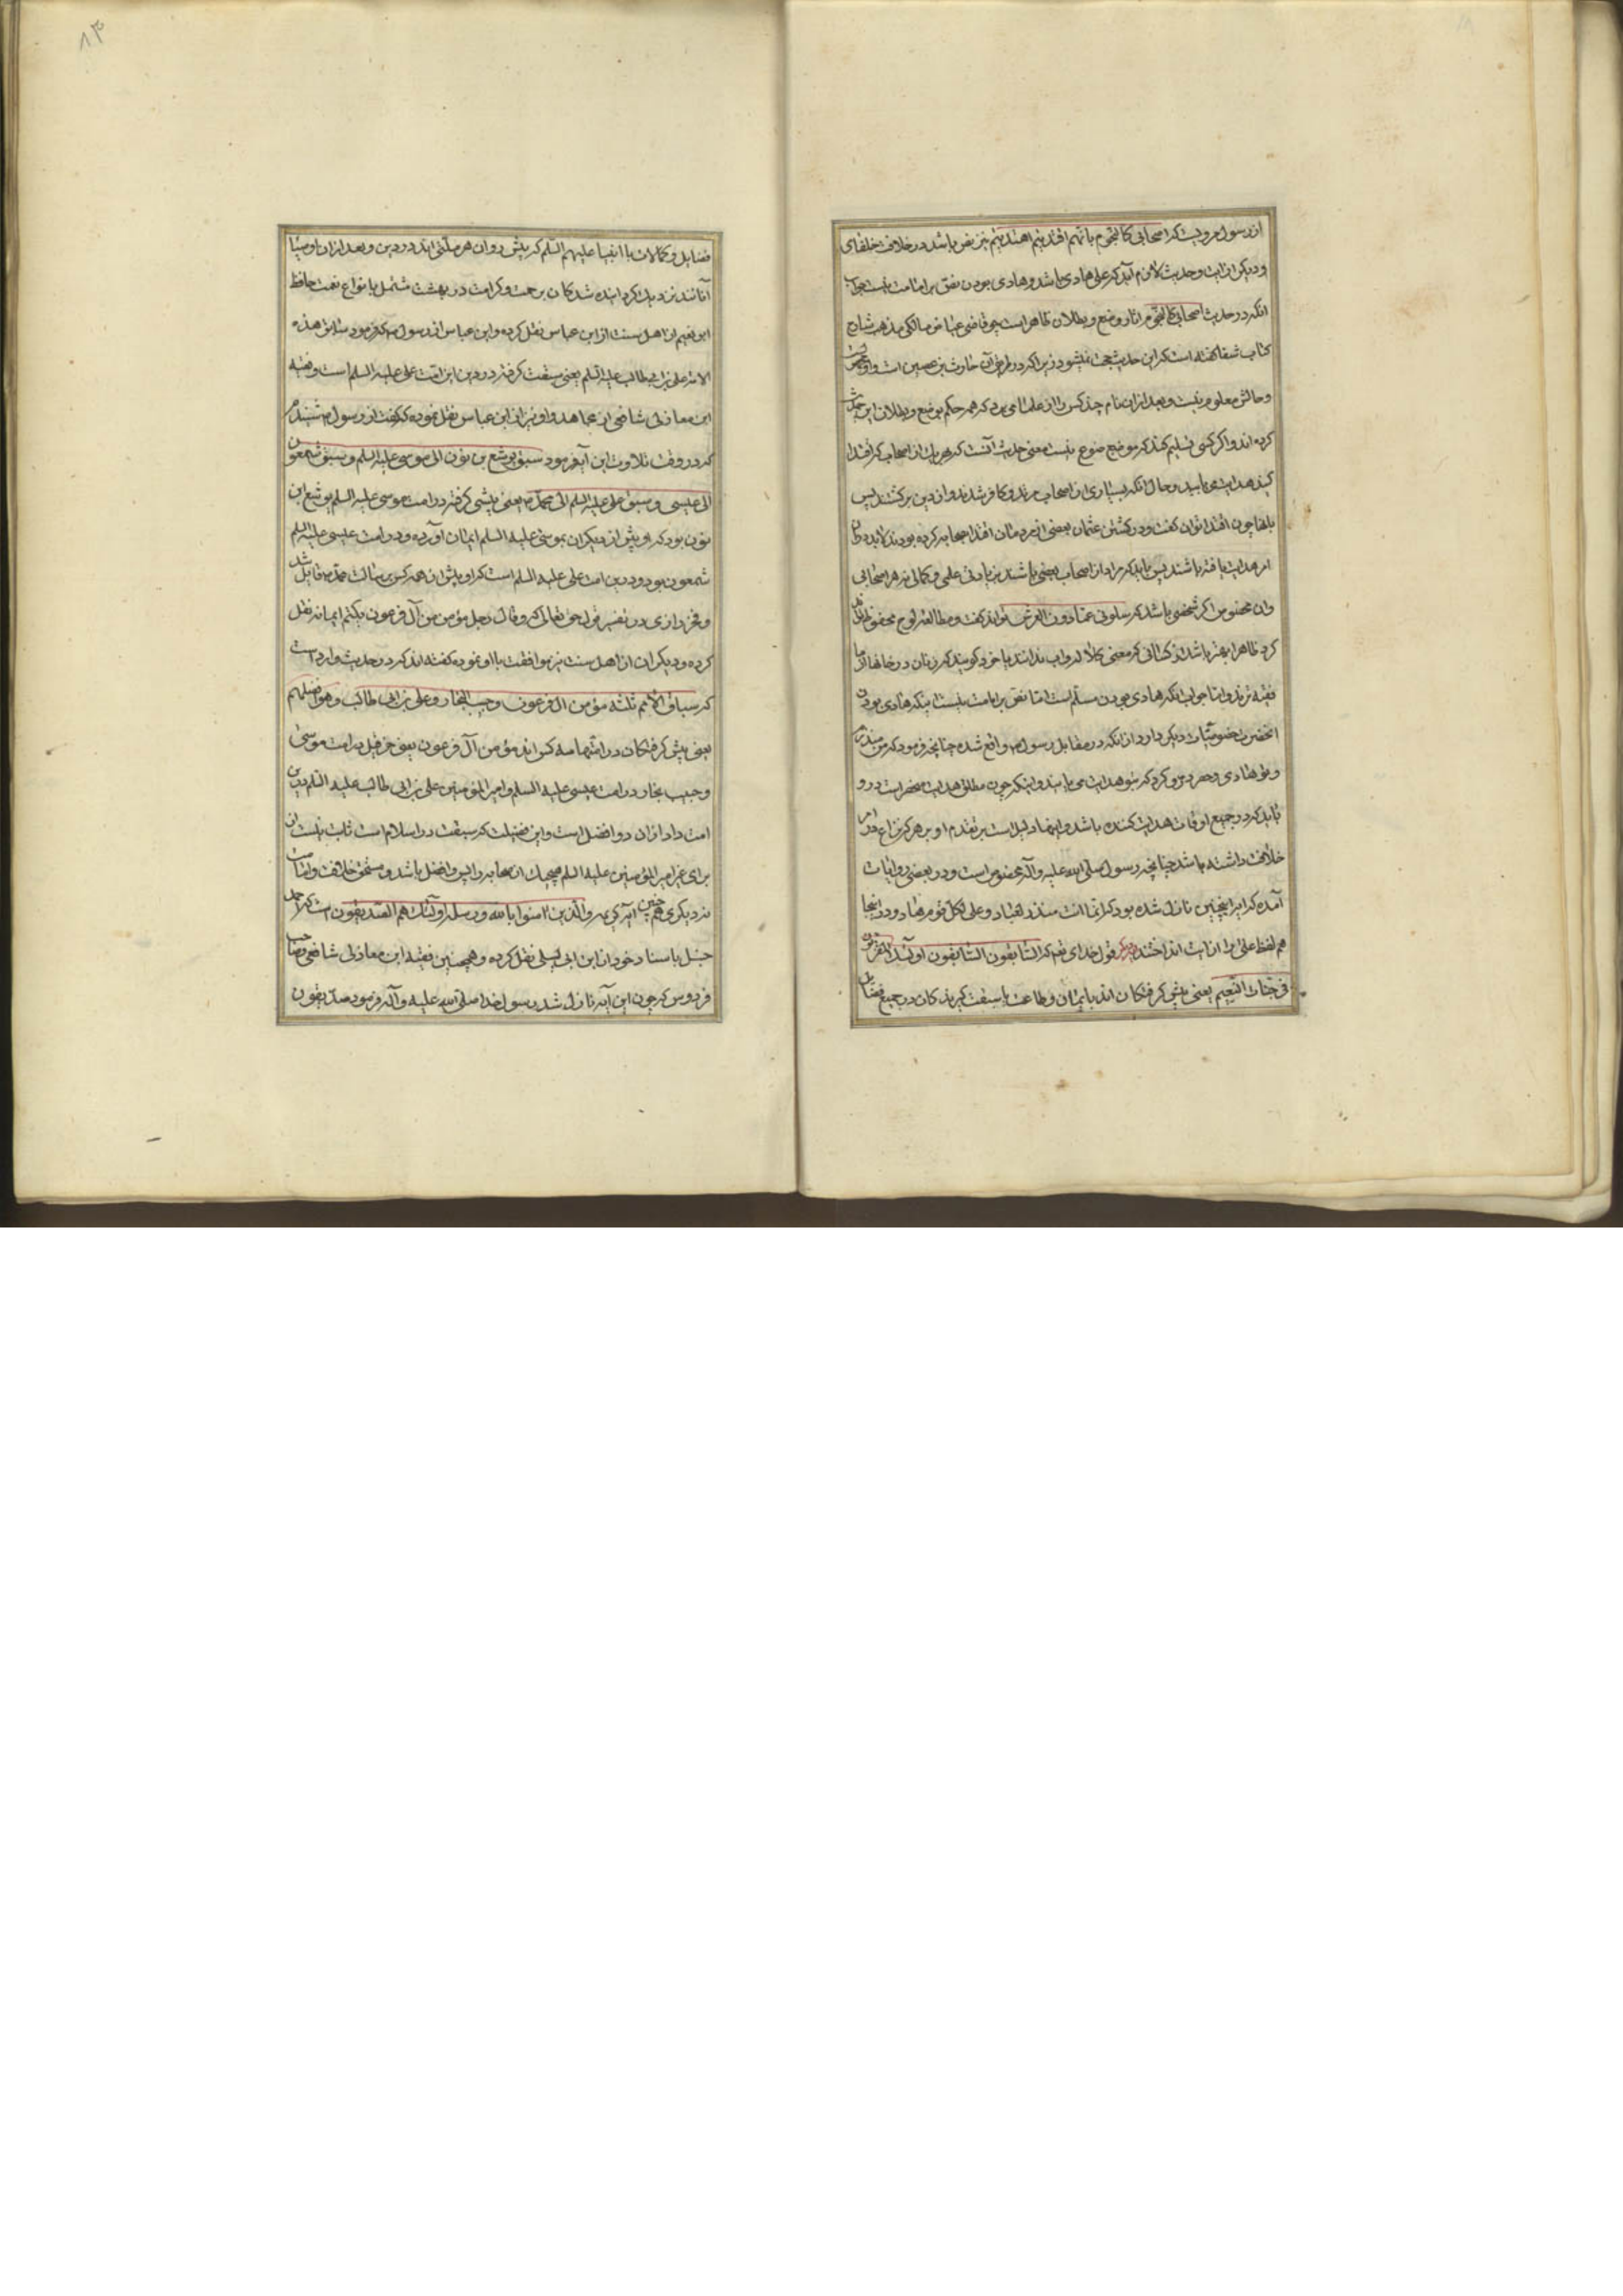 از رسول مرویست که اصحابی کالنجوم بایهم اقتدیتم اهتدیتم نیز نص باشد در خلافت خلفای
و دیگر از آیت و حدیث لازم آید که علی هادی باشد و هادی بودن نص بر امامت نیست جواب
آنکه در حدیث اصحابی کالنجوم آثار وضع و بطلان ظاهر است چو قاضی عیاض مالکی مذهب شارح
کتاب شفا گفته است که این حدیث حجت نمیشود زیرا که در طریق آن حارث بن عصین است و او
و حالش معلوم نیست و بعد از آن نام چند کس را از علما می برد که همه حکم بوضع و بطلان این حدیث
کرده اند و اگر کسی تسلیم کند که موضوع نیست معنی حدیث آنست که هر یک از اصحاب که اقتدا
کنید هدایت می یابید و حال آنکه بسیاری از اصحاب مرتد و کافر شدند و از دین برگشتند پس
باینها چون اقتدا توان گفت و در کشتن عثمان بعضی از مردمان اقتدا بصحابه کرده بودند
هدایت یافته باشند پس باید که مراد از اصحاب بعضی باشند بزیادتی علمی و کمالی نه هر اصحابی
وان مخصوص اگر شخصی باشد که سلونی عما دون العرش تواند گفت و مطالعه لوح محفوظ
کرد ظاهرا بهتر باشد از کسانی که معنی کلاله و اب ندانند یا خود گویند که زنان در خانها از ما
فقیه ترند و اما جواب آنکه هادی بودن مسلم است اما نص بر امامت نیست اینکه هادی بودن
آنحضرت خصوصیات دیگر دارد از آنکه در مقابل رسول ص واقع شده چنانچه فرمود که من منذرم
و تو هادی و حصر در او کرد که بتو هدایت می یابند و اینکه چون مطلق هدایت منحصر است در او
باید که در جمیع اوقات هدایت کننده باشد و اینها دلیل است بر تقدم او بر هر که نزاع در امر
خلافت داشته باشد چنانچه رسول صلی الله علیه و آله مخصوص است و در بعضی روایات
آمده که این اینچنین نازل شده بود که انما انت منذر لعباد و علی لکل قوم هاد و در اینجا
هم لفظ علی را از آیت انداختند دیگر قول خدای تعم که السابقون السابقون اولئک المقربون
فی جنات النعیم یعنی پیشی گرفتگان اند بایمان و طاعت یا سبقت گیرندگان در جمیع فضایل
۸۳
فضایل و کمالات یا انبیا علیهم السلم که پیش روان هر ملتی اند در دین و بعد از آن اوصیا
آنانند نزدیک گردانیده شدگان برحمت و کرامت در بهشت مشتمل بانواع نعمت حافظ
ابو نعیم از اهل سنت از ابن عباس نقل کرده و ابن عباس از رسول ص که فرمود سابق هذه
الامة علی بن ابی طالب علیه السلم یعنی سبقت گرفته در دین این امت علی علیه السلم است و فقیه
ابن مغازلی شافعی از مجاهد و او نیز از ابن عباس نقل نموده که گفت از رسول ص شنیدم
که در وقت تلاوت این آیه فرمود سبق یوشع بن نون الی موسی علیه السلم و سبق شمعون
الی عیسی و سبق علی علیه السلم الی محمد ص یعنی پیشی گرفته در امت موسی علیه السلم یوشع ابن
نون بود که او پیش از دیگران بموسی علیه السلم ایمان آورده و در امت عیسی علیه السلم
شمعون بود و در این امت علی علیه السلم است که او پیش از همه کس برسالت محمد ص قایل شد
و فخر رازی در تفسیر قول حق تعالی که و قال رجل مؤمن من آل فرعون یکتم ایمانه نقل
کرده و دیگران از اهل سنت نیز موافقت با او نموده گفته اند که در حدیث وارد است
که سباق الامم ثلثه مؤمن آل فرعون و حبیب النجار و علی بن ابی طالب و هو افضلهم
یعنی پیش گرفتگان در امتها سه کس اند مؤمن آل فرعون یعنی حزقیل در امت موسی
و حبیب نجار در امت عیسی علیه السلم و امیر المؤمنین علی بن ابی طالب علیه السلم در این
امت و او از آن دو افضل است و این فضیلت که سبقت در اسلام است ثابت نیست
برای غیر امیر المؤمنین علیه السلم هیچیک از صحابه را پس افضل باشد و مستحق خلافت و امامت
نه دیگری همچنین آیه کریمه و الذین آمنوا بالله و رسله اولئک هم الصدیقون است که احمد
حنبل باسناد خود از ابن ابی لیلی نقل کرده و همچنین فقیه ابن مغازلی شافعی و صاحب
فردوس که چون این آیه نازل شد رسول خدا صلی الله علیه و آله فرمود صدیقون